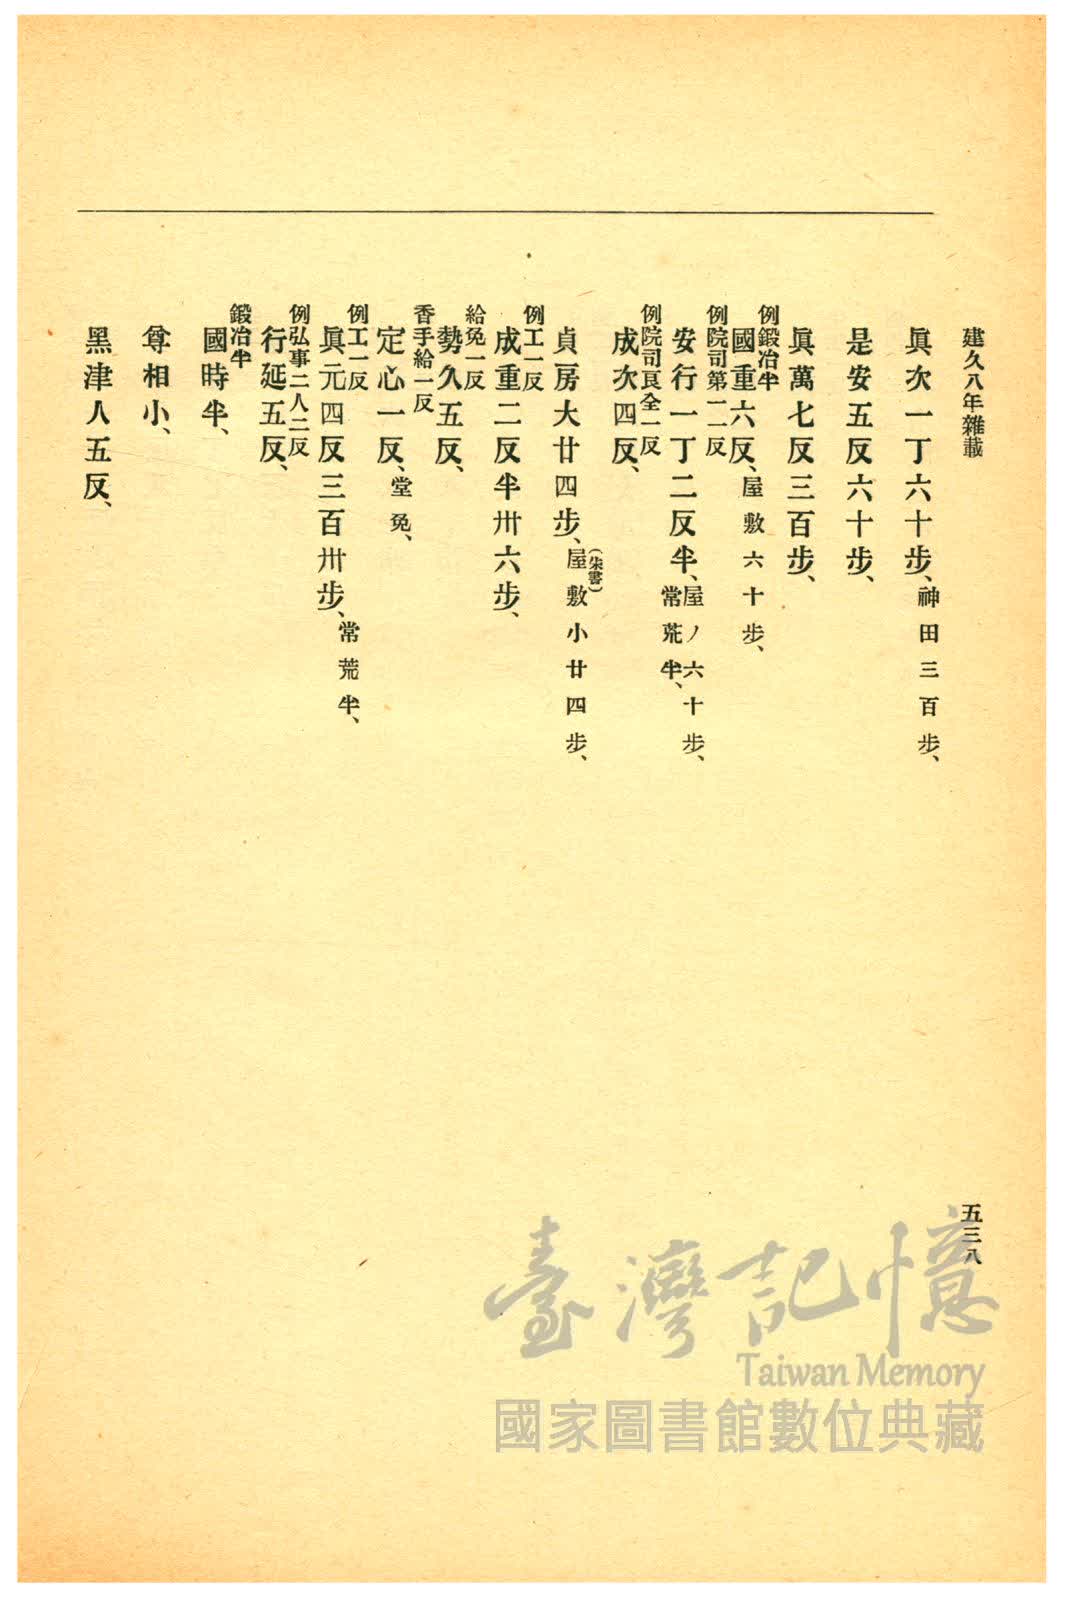 建久八年雜載
五三八
眞次一丁六十步、神田三百步、
是安五反六十步、
眞萬七反三百步、
例鍛冶半
國重六反、屋敷六十步、
例院司第一二反
安行一丁二反半、屋ノ六十步、常荒半、
例院司良全一反
成次四反、
貞房大廿四步、(朱書)屋敷小廿四步、
例工一反
成重二反半卅六步、
給免一反
勢久五反、
香手給一反
定心一反、堂免、
例工一反
眞元四反三百卅步、常荒半、
例弘事二人二反
行延五反、
鍛冶半
國時半、
尊相小、
黑津人五反、
臺灣記憶
Taiwan Memory
國家圖書館數位典藏